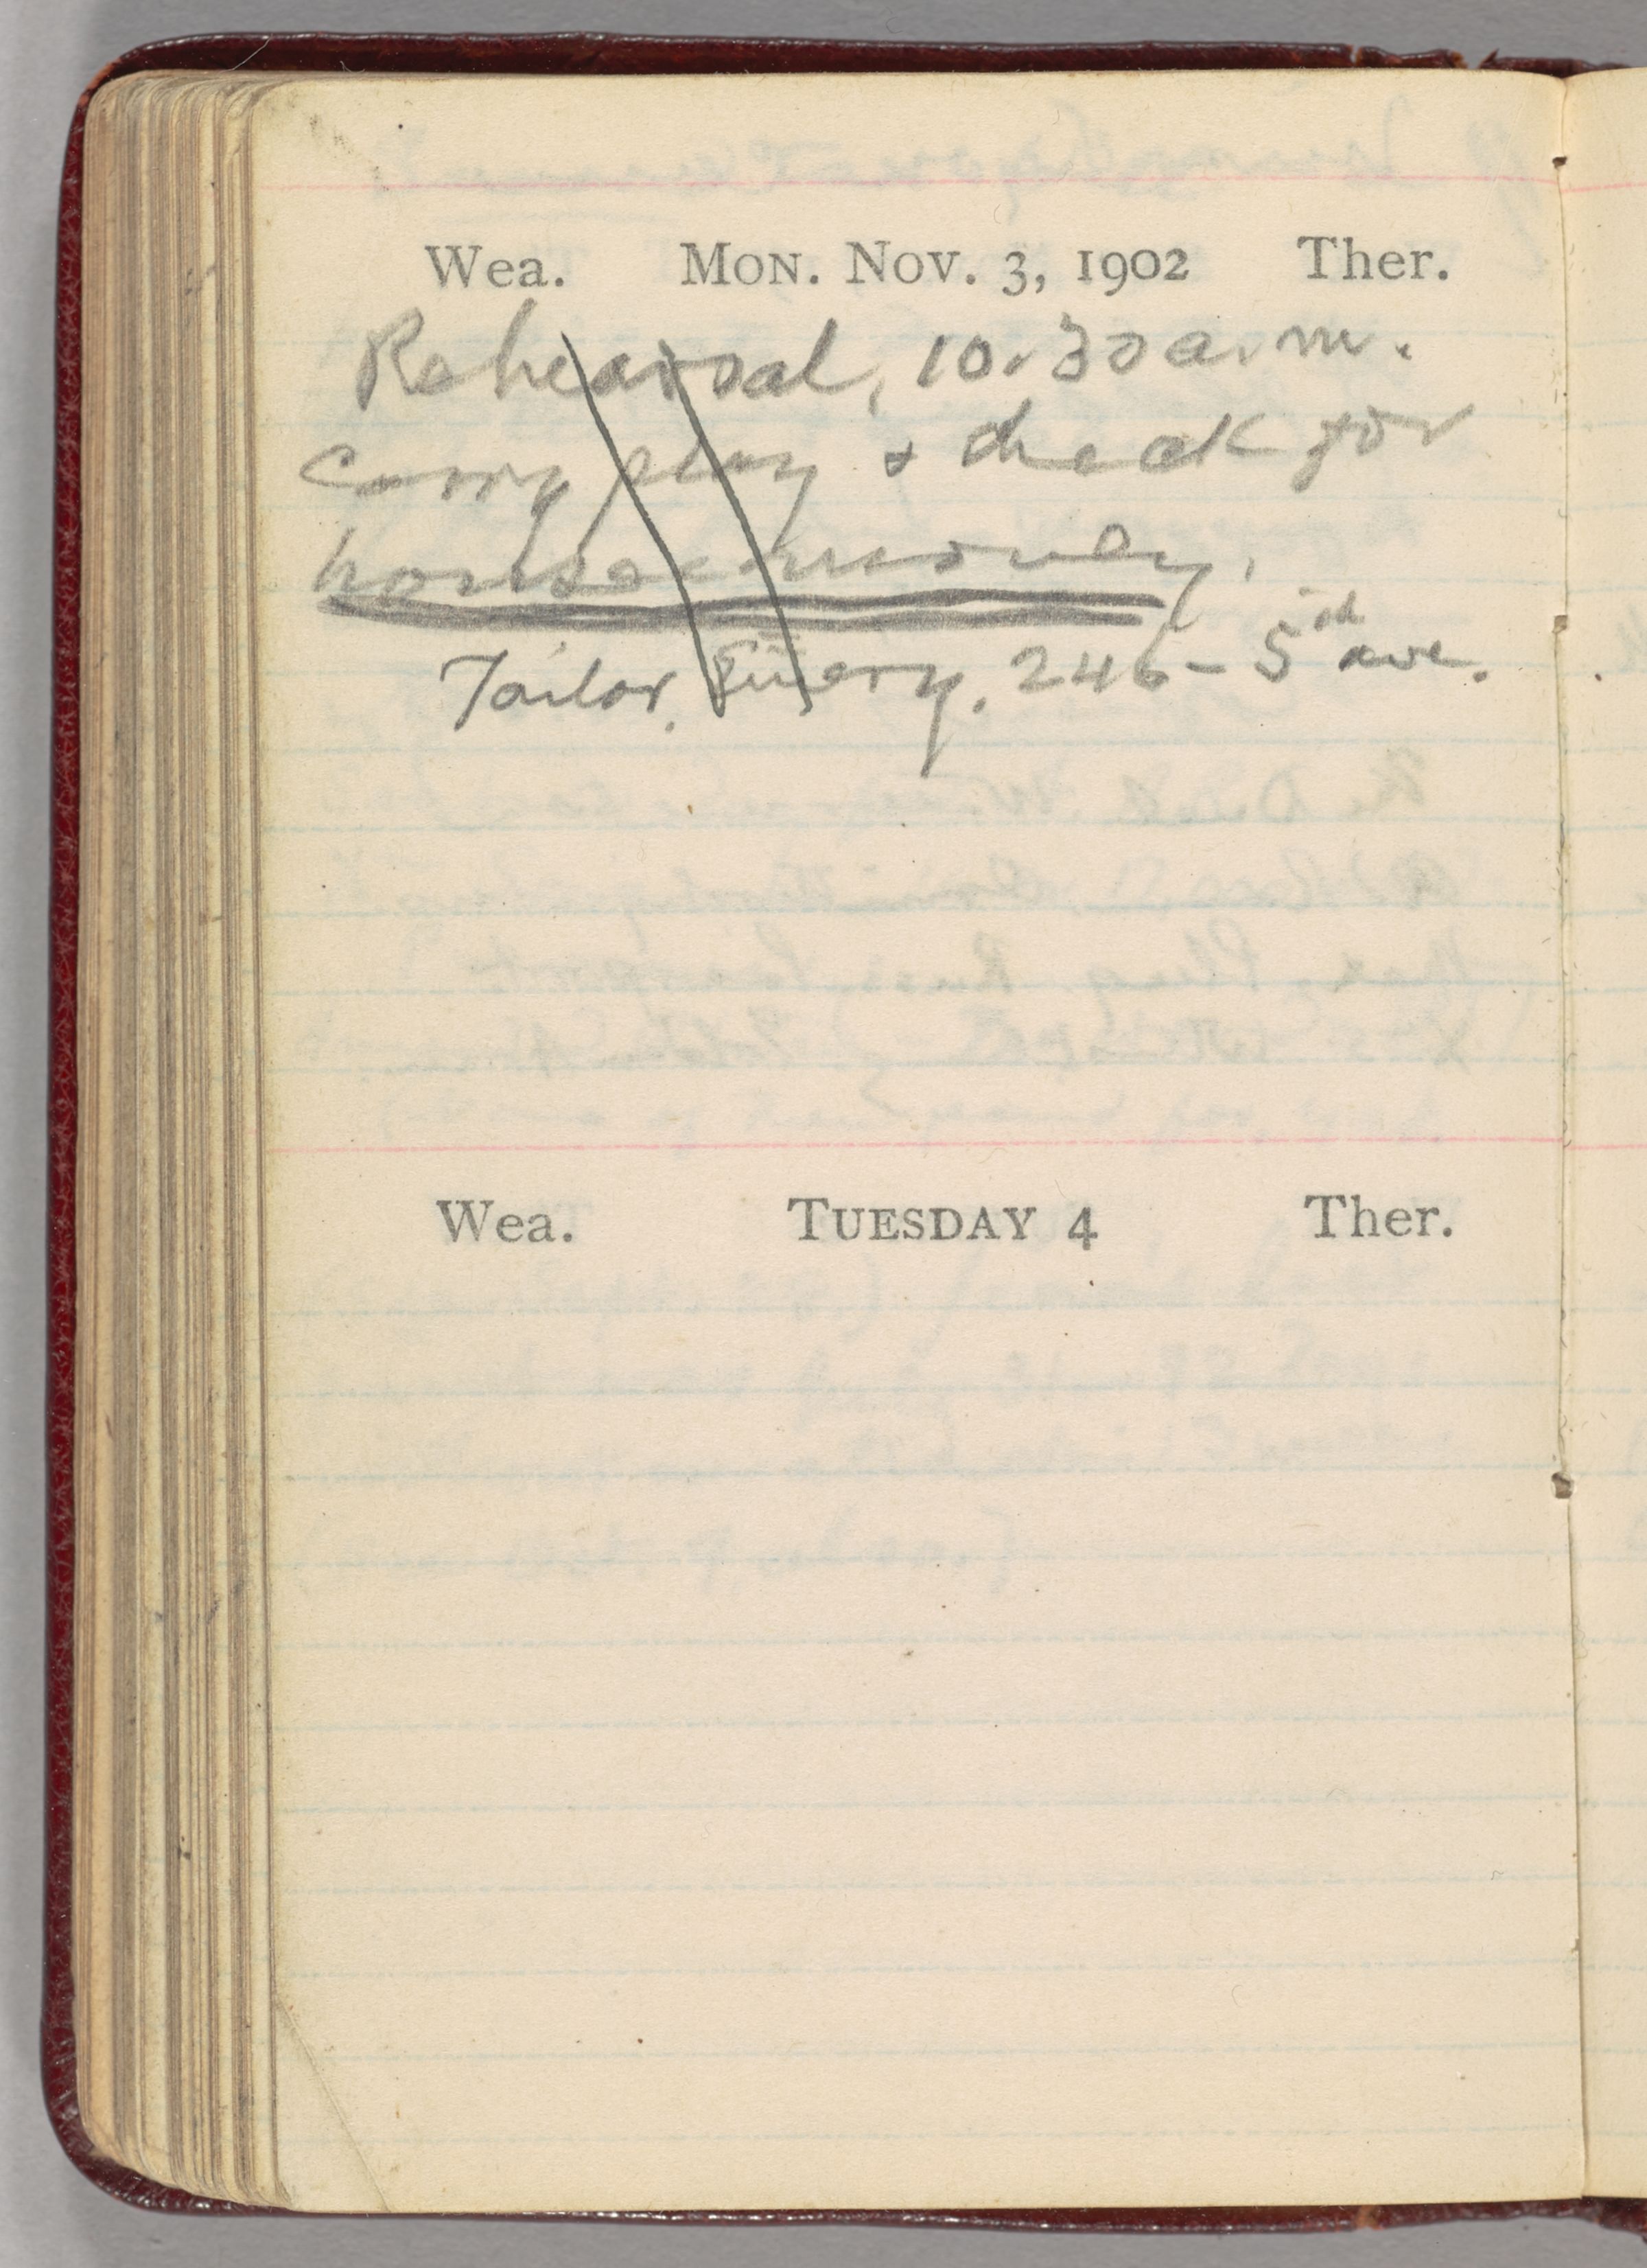 Wea. Mon. Nov. 3, 1902 Ther.
Rehearsal, 10.30 a.m.
carry play & check for
house-money.
Tailor, 246 - 5th ave.
Wea. Tuesday 4 Ther.